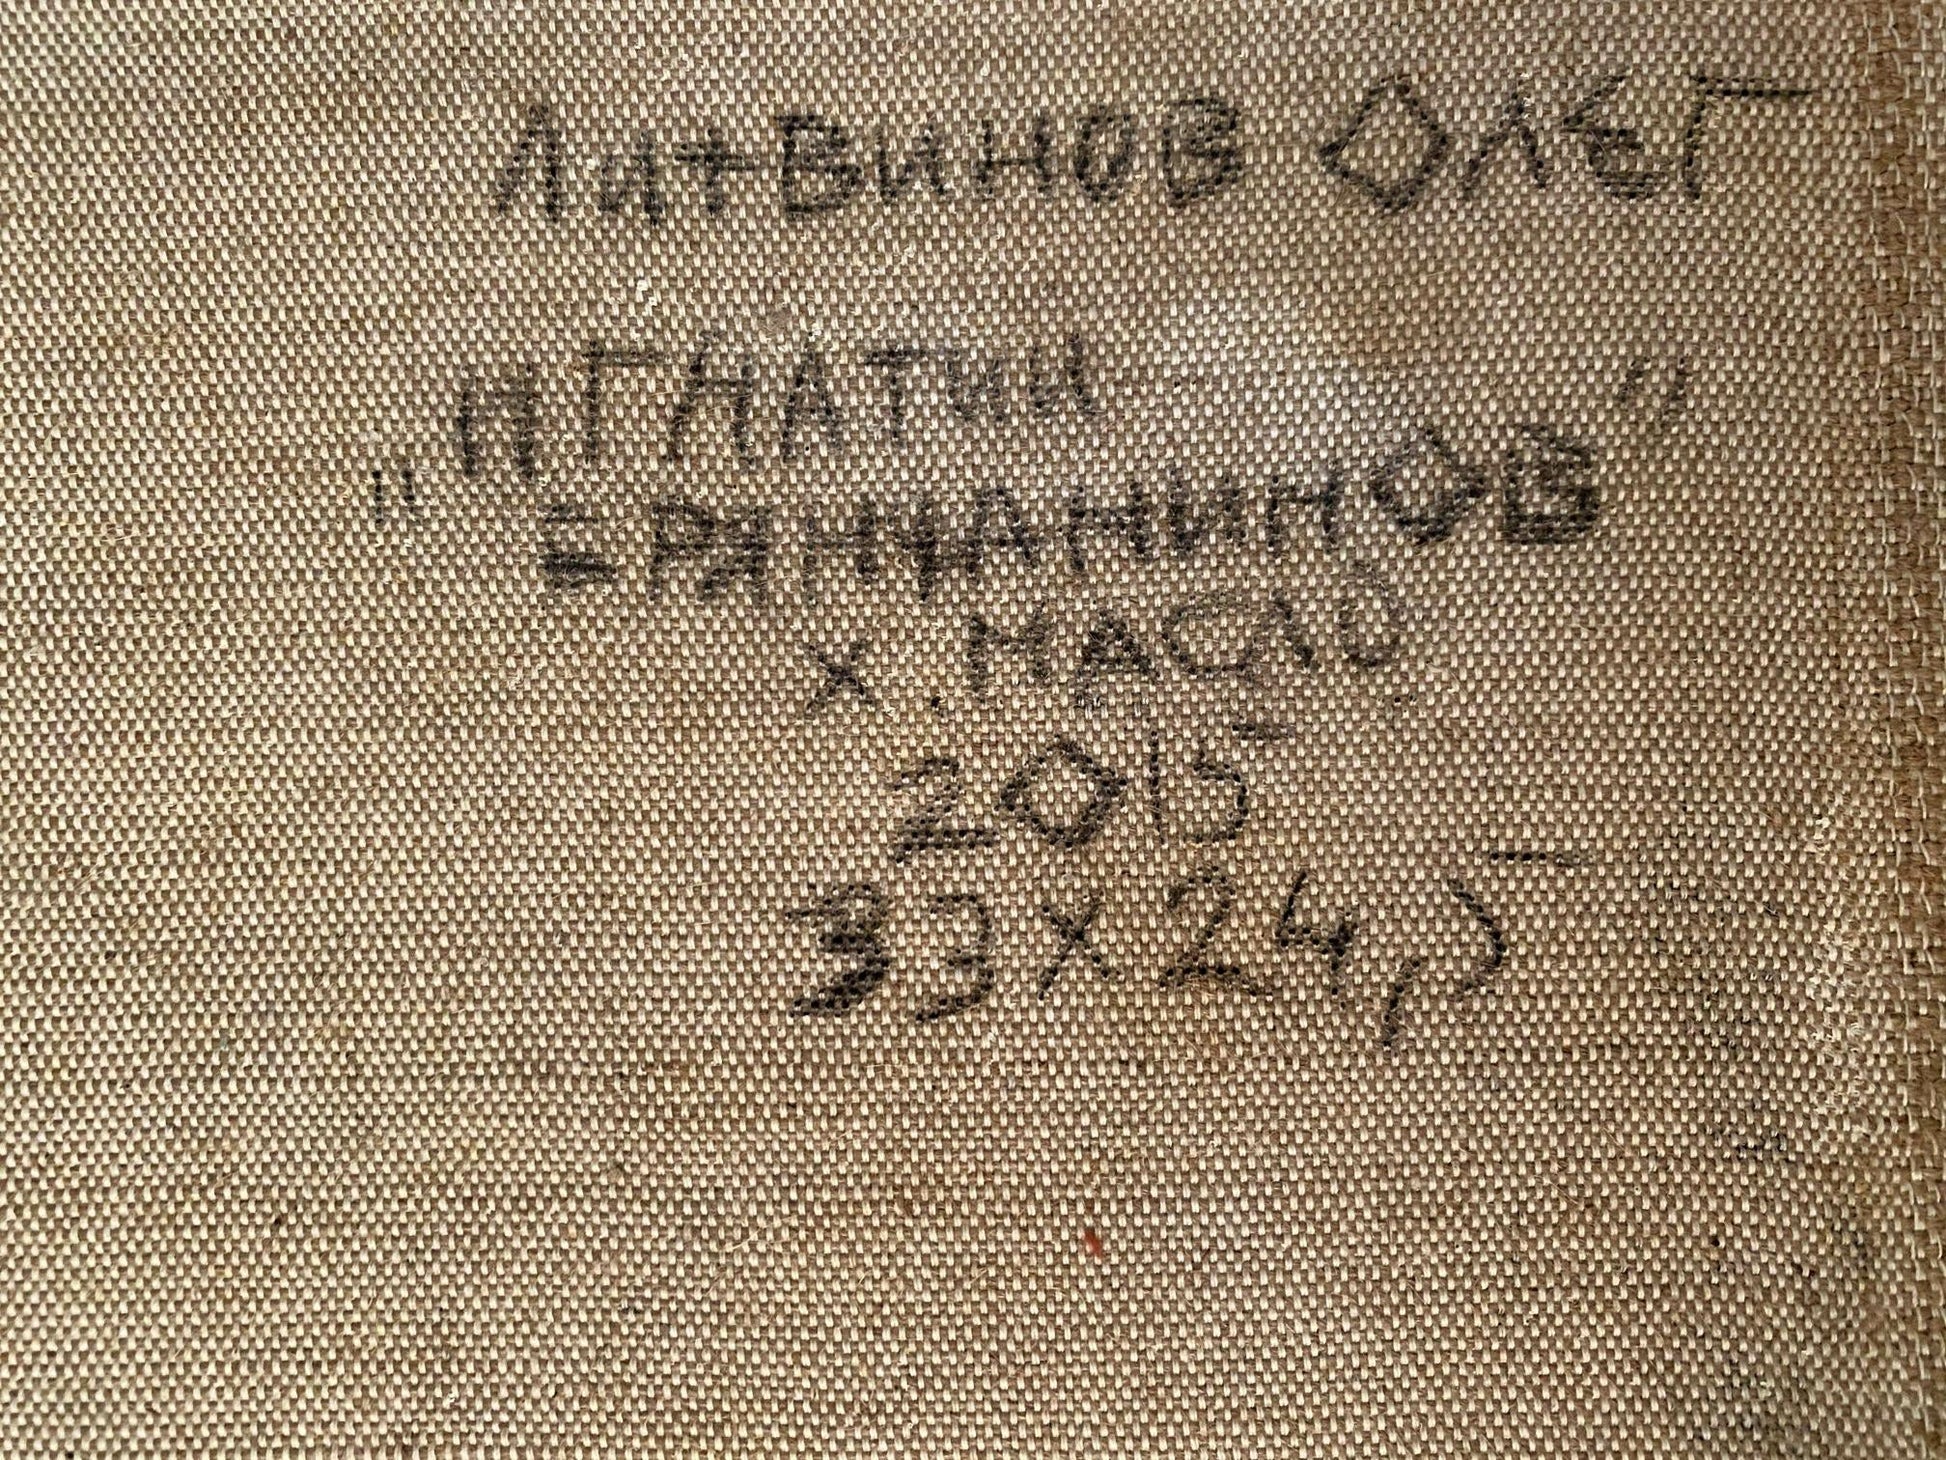 ЛитВИНОВ ОЛЕГ
"ИГНАТИЙ
БРЯНЧАНИНОВ"
Х. МАСЛО
2015
33Х24,5